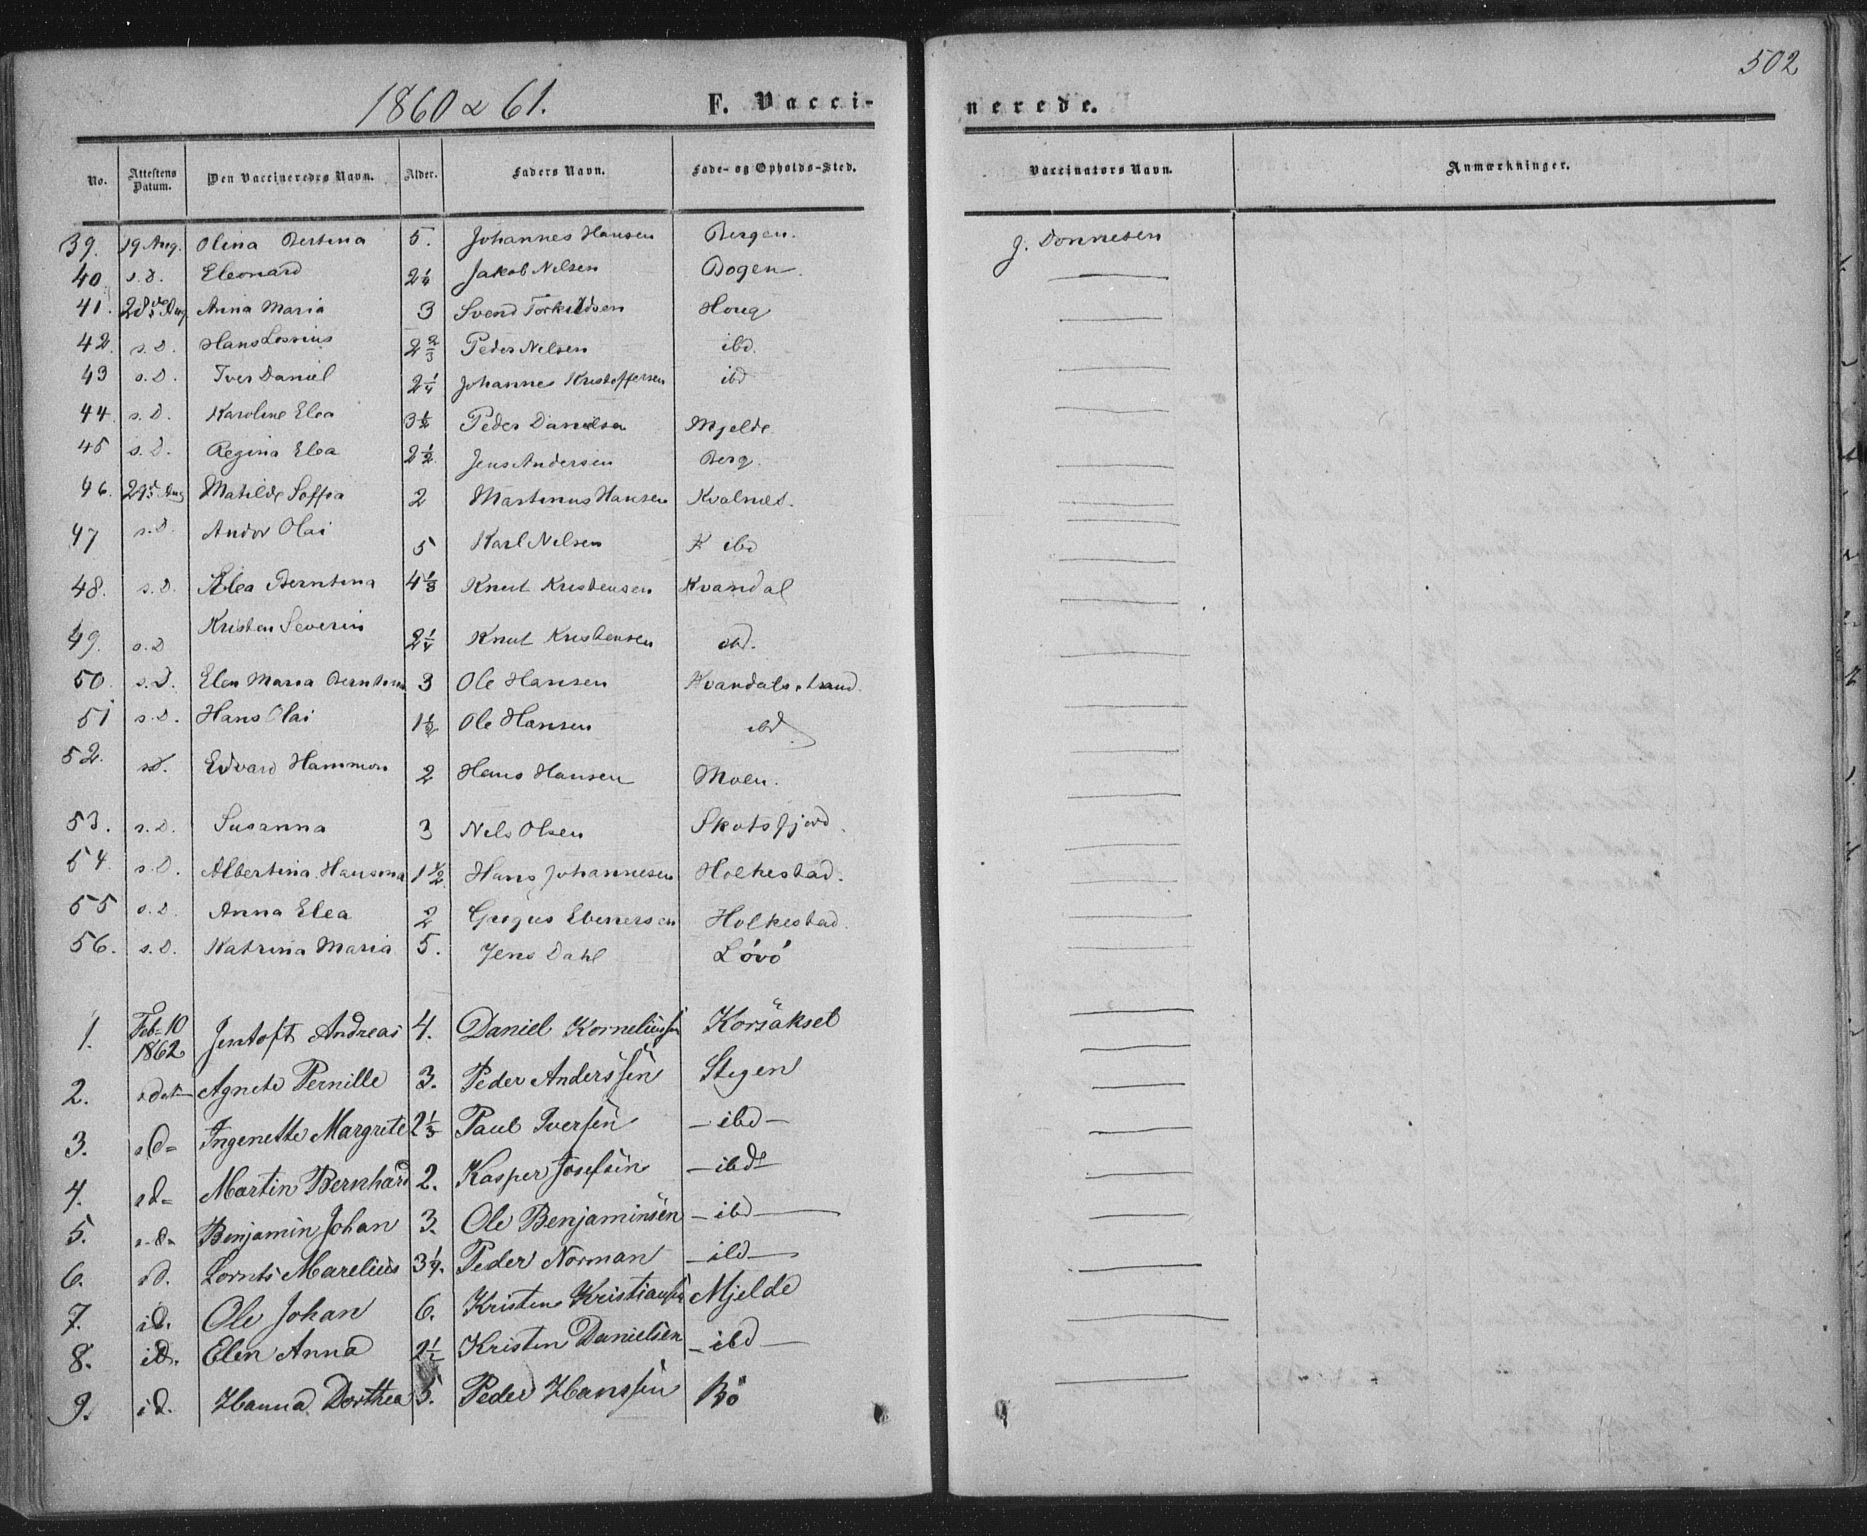 502
1860 & 61. F. Vacci- nerede.
No. Attestens Datum. Den Vaccineredes Navn. Alder. Faders Navn. Føde- og Opholds-Sted. Vaccinators Navn. Anmærkninger.
39. 19 Aug. Olina Bertina 5. Johannes Hansen Bergen. J. Donnesen
40. s. d. Eleonard 2¼ Jakob Nilsen Bogen. —
41. 28de Aug Anna Maria 3 Svend Torkildsen Houg —
42. s. d. Hans Lossius 2⅔ Peder Nilsen ibd. —
43 s. d. Iver Daniel 2¼ Johannes Kristoffersen ibd —
44 s. d. Karoline Elea 3½ Peder Danielsen Mjelde —
45 s. d. Regina Elea 2½ Jens Andersen Berg. —
46. 29d Aug Matilde Soffia 2 Martinus Hansen Kvalnes. —
47 s. d. Andor Olai 5 Karl Nilsen ibd —
48. s. d. Elea Berntina 4⅓ Knut Kristensen Kvandal —
49. s. d Kristen Severin 2¼ Knut Kristensen ibd. —
50. s. d. Elen Maria Berntina 3 Ole Hansen Kvandalstrand. —
51 s. d. Hans Olai 1½ Ole Hansen ibd. —
52. sd. Edvard Hammon 2 Hans Hansen Moen. —
53. s. d. Susanna 3 Nils Olsen Skotsfjord. —
54. s. d. Albertina Hansina 1½ Hans Johannesen Holkestad. —
55 s. d. Anna Elea 2 Grigus Ebenersen Holkestad. —
56. s. d. Katrina Maria 5. Jens Dahl Lövö —
1. Feb. 10 1862 Jentoft Andreas 4. Daniel Korneliussen Korsåkset —
2. sdat Agnete Pernille 3. Peder Anderssen Stegen —
3. sd Ingenette Margrete 2⅓ Paul Iversen — ibd — —
4. sd Martin Bernhard 2. Kasper Josefsen — ibd —
5. s.d. Benjamin Johan 3. Ole Benjaminsen — ibd — —
6. sd. Lornts Marelius 3¼. Peder Norman — ibd — —
7. id. Ole Johan 6. Kristen Kristiansen Mjelde —
8. id. Elen Anna 2½ Kristen Danielsen — ibd — —
9. id. Hanna Dorthea 5. Peder Hanssen Bö —